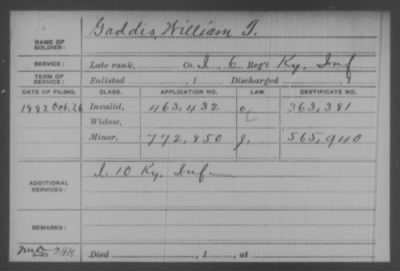 Gaddis, William T.
NAME OF
SOLDIER:
SERVICE: Late rank, Co. I, 6 Reg't Ky. Inf
TERM OF
SERVICE: Enlisted , 1 Discharged , 1
DATE OF FILING. CLASS. APPLICATION NO. LAW. CERTIFICATE NO.
1882 Oct. 26 Invalid, 463,432 363,381
Widow,
Minor, 772,850 J. 565,940
ADDITIONAL
SERVICES: I. 10 Ky. Inf
REMARKS:
Died , 1 , at